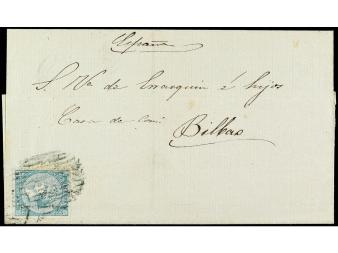 España
S. Va de Ensarquin é hijos
Casa de Comº
Bilbao